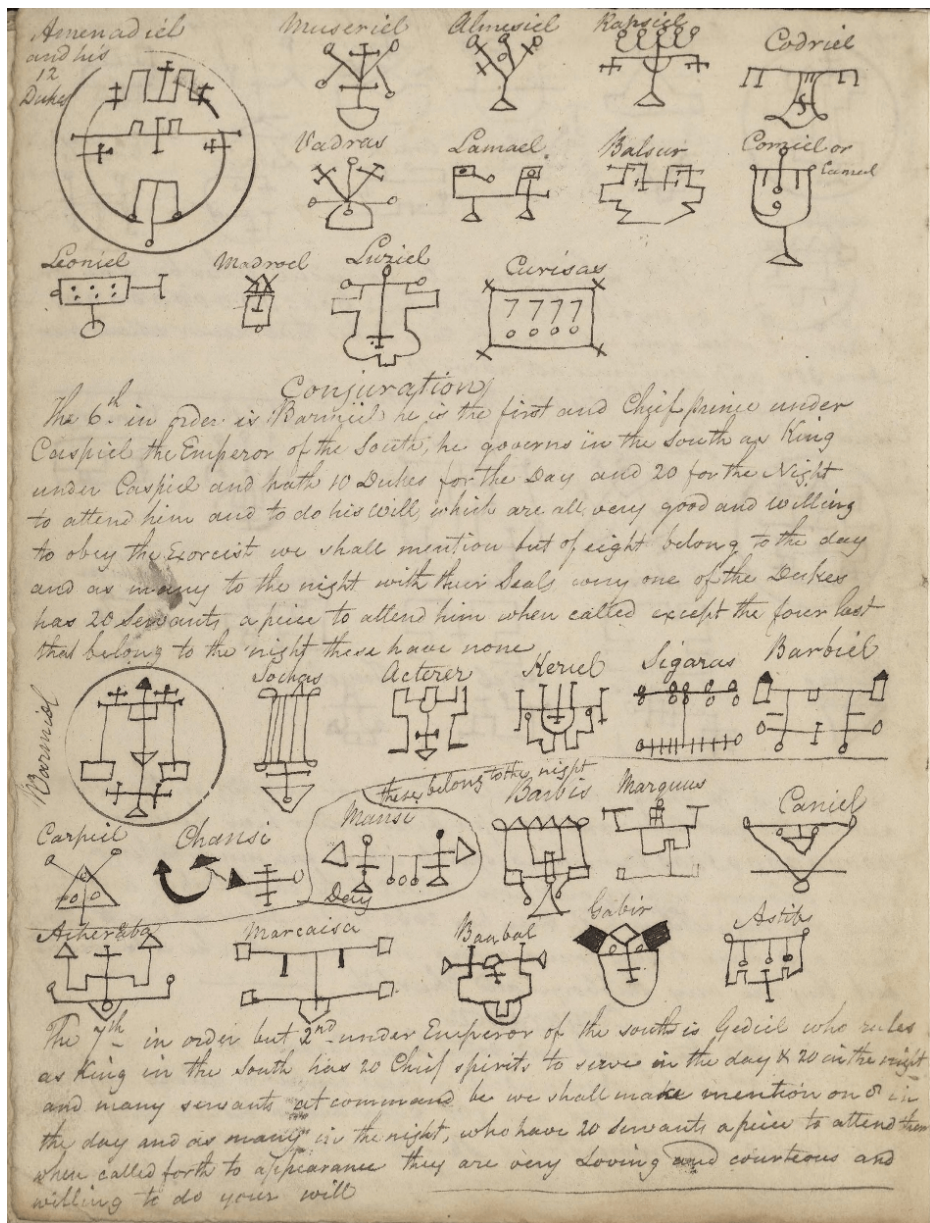 Amenadiel
and his
12
Dukes
Museriel
Almesiel
Rapsiel
Codriel
Vadras
Lamael.
Balsur
Comiel or
Camel
Leoniel
Madroel
Luziel
Curisas
7777
Conjuration
The 6th in order is Barmiel he is the first and Chief prince under
Caspiel the Emperor of the South, he governs in the South as King
under Caspiel and hath 10 Dukes for the Day and 20 for the Night
to attend him and to do his will, which are all very good and willing
to obey the Exorcist we shall mention but of eight belong to the day
and as many to the night with their Seals every one of the Dukes
has 20 Servants a piece to attend him when called except the four last
that belong to the night these have none
Barmiel
Sochas
Acterer
Keriel
Sigaras
Barbiel
these belong to the night
Carpiel
Chansi
Mansi
Day
Barbis
Marquus
Caniel
Acheraba
Marcaisa
Baabal
Gabir
Astib
The 7th in order but 2nd under Emperor of the south is Gediel who rules
as King in the South has 20 Chief spirits to serve in the day & 20 in the night
and many servants at command be we shall make mention on 8 in
the day and as many in the night, who have 20 Servants a piece to attend them
when called forth to appearance they are very Loving and courteous and
willing to do your will